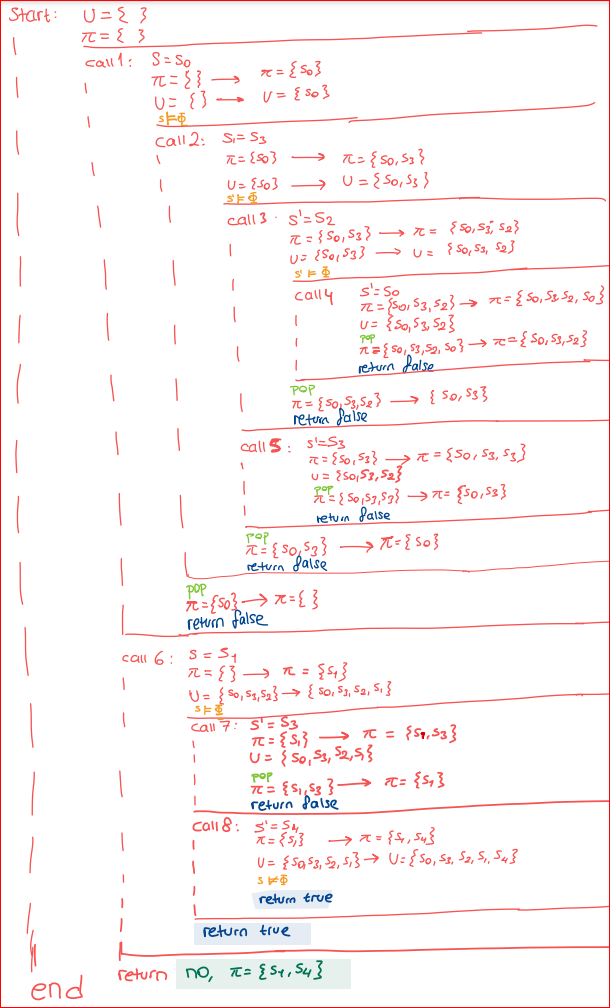 Start: U = { }
π = { }
call 1: S = S0
π = { } → π = {S0}
U = { } → U = {S0}
s ⊨ Φ
call 2: S' = S3
π = {S0} → π = {S0, S3}
U = {S0} → U = {S0, S3}
s' ⊨ Φ
call 3 S' = S2
π = {S0, S3} → π = {S0, S3, S2}
U = {S0, S3} → U = {S0, S3, S2}
s' ⊨ Φ
call 4 S' = S0
π = {S0, S3, S2} → π = {S0, S3, S2, S0}
U = {S0, S3, S2}
pop
π = {S0, S3, S2, S0} → π = {S0, S3, S2}
return false
pop
π = {S0, S3, S2} → {S0, S3}
return false
call 5: S' = S3
π = {S0, S3} → π = {S0, S3, S3}
U = {S0, S3, S2}
pop
π = {S0, S3, S3} → π = {S0, S3}
return false
pop
π = {S0, S3} → π = {S0}
return false
pop
π = {S0} → π = { }
return false
call 6: S = S1
π = { } → π = {S1}
U = {S0, S3, S2} → {S0, S3, S2, S1}
s ⊨ Φ
call 7: S' = S3
π = {S1} → π = {S1, S3}
U = {S0, S3, S2, S1}
pop
π = {S1, S3} → π = {S1}
return false
call 8: S' = S4
π = {S1} → π = {S1, S4}
U = {S0, S3, S2, S1} → U = {S0, S3, S2, S1, S4}
s ⊭ Φ
return true
return true
return no, π = {S1, S4}
end